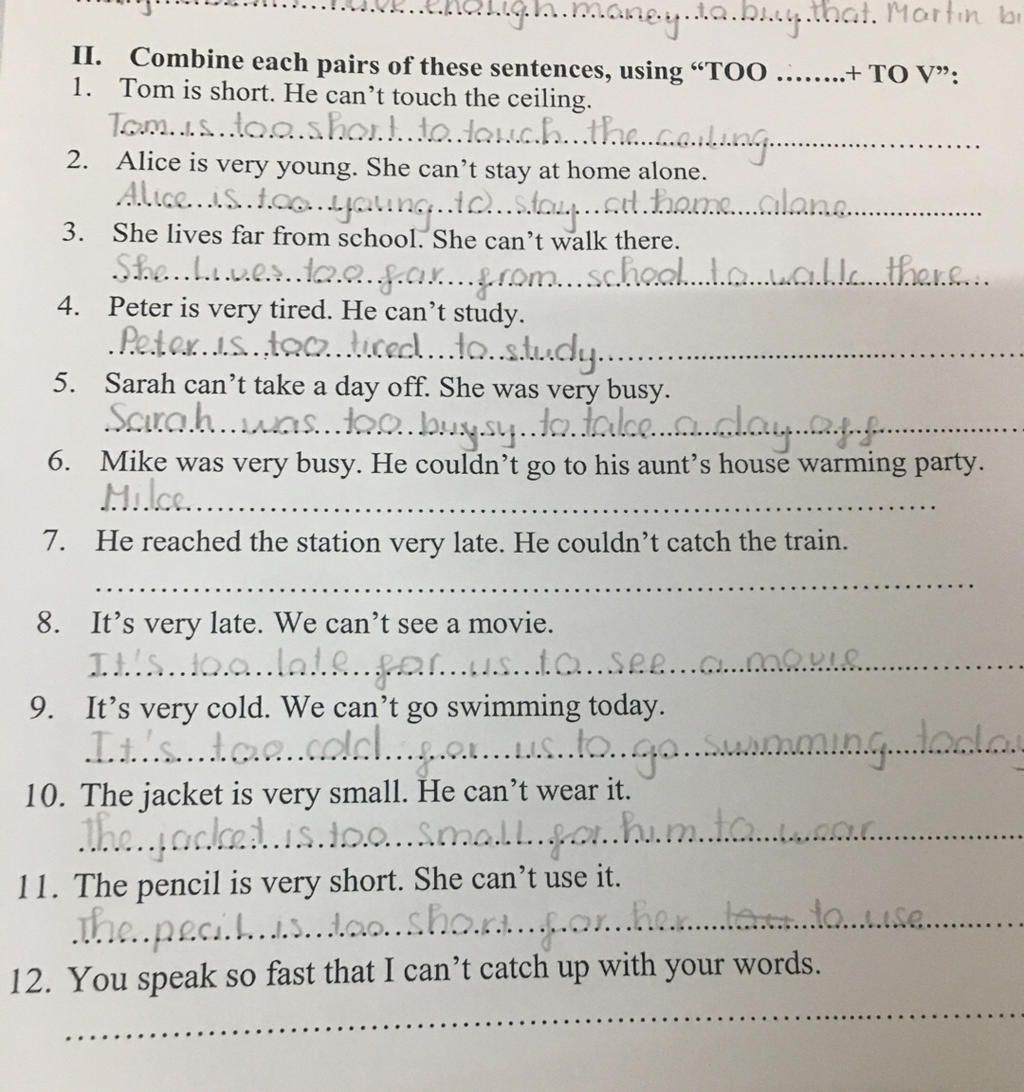 have enough maney to buy that. Martin
II. Combine each pairs of these sentences, using “TOO ........+ TO V”:
1. Tom is short. He can’t touch the ceiling.
Tom is too short to touch the ceiling
2. Alice is very young. She can’t stay at home alone.
Alice is too young to stay at home alone
3. She lives far from school. She can’t walk there.
She lives too far from school to walk there
4. Peter is very tired. He can’t study.
Peter is too tired to study
5. Sarah can’t take a day off. She was very busy.
Sarah was too buysy to take a day off
6. Mike was very busy. He couldn’t go to his aunt’s house warming party.
Mike
7. He reached the station very late. He couldn’t catch the train.
8. It’s very late. We can’t see a movie.
It's too late for us to see a movie
9. It’s very cold. We can’t go swimming today.
It's too cold for us to go swimming today
10. The jacket is very small. He can’t wear it.
The jacket is too small for him to wear
11. The pencil is very short. She can’t use it.
The pecil is too short for her to use
12. You speak so fast that I can’t catch up with your words.